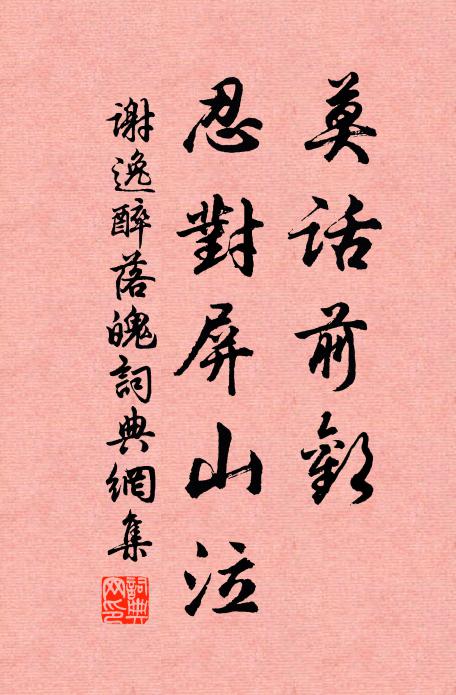 莫話前歡
忍對屏山泣
謝逸醉落魄詞典網集
詞典網印